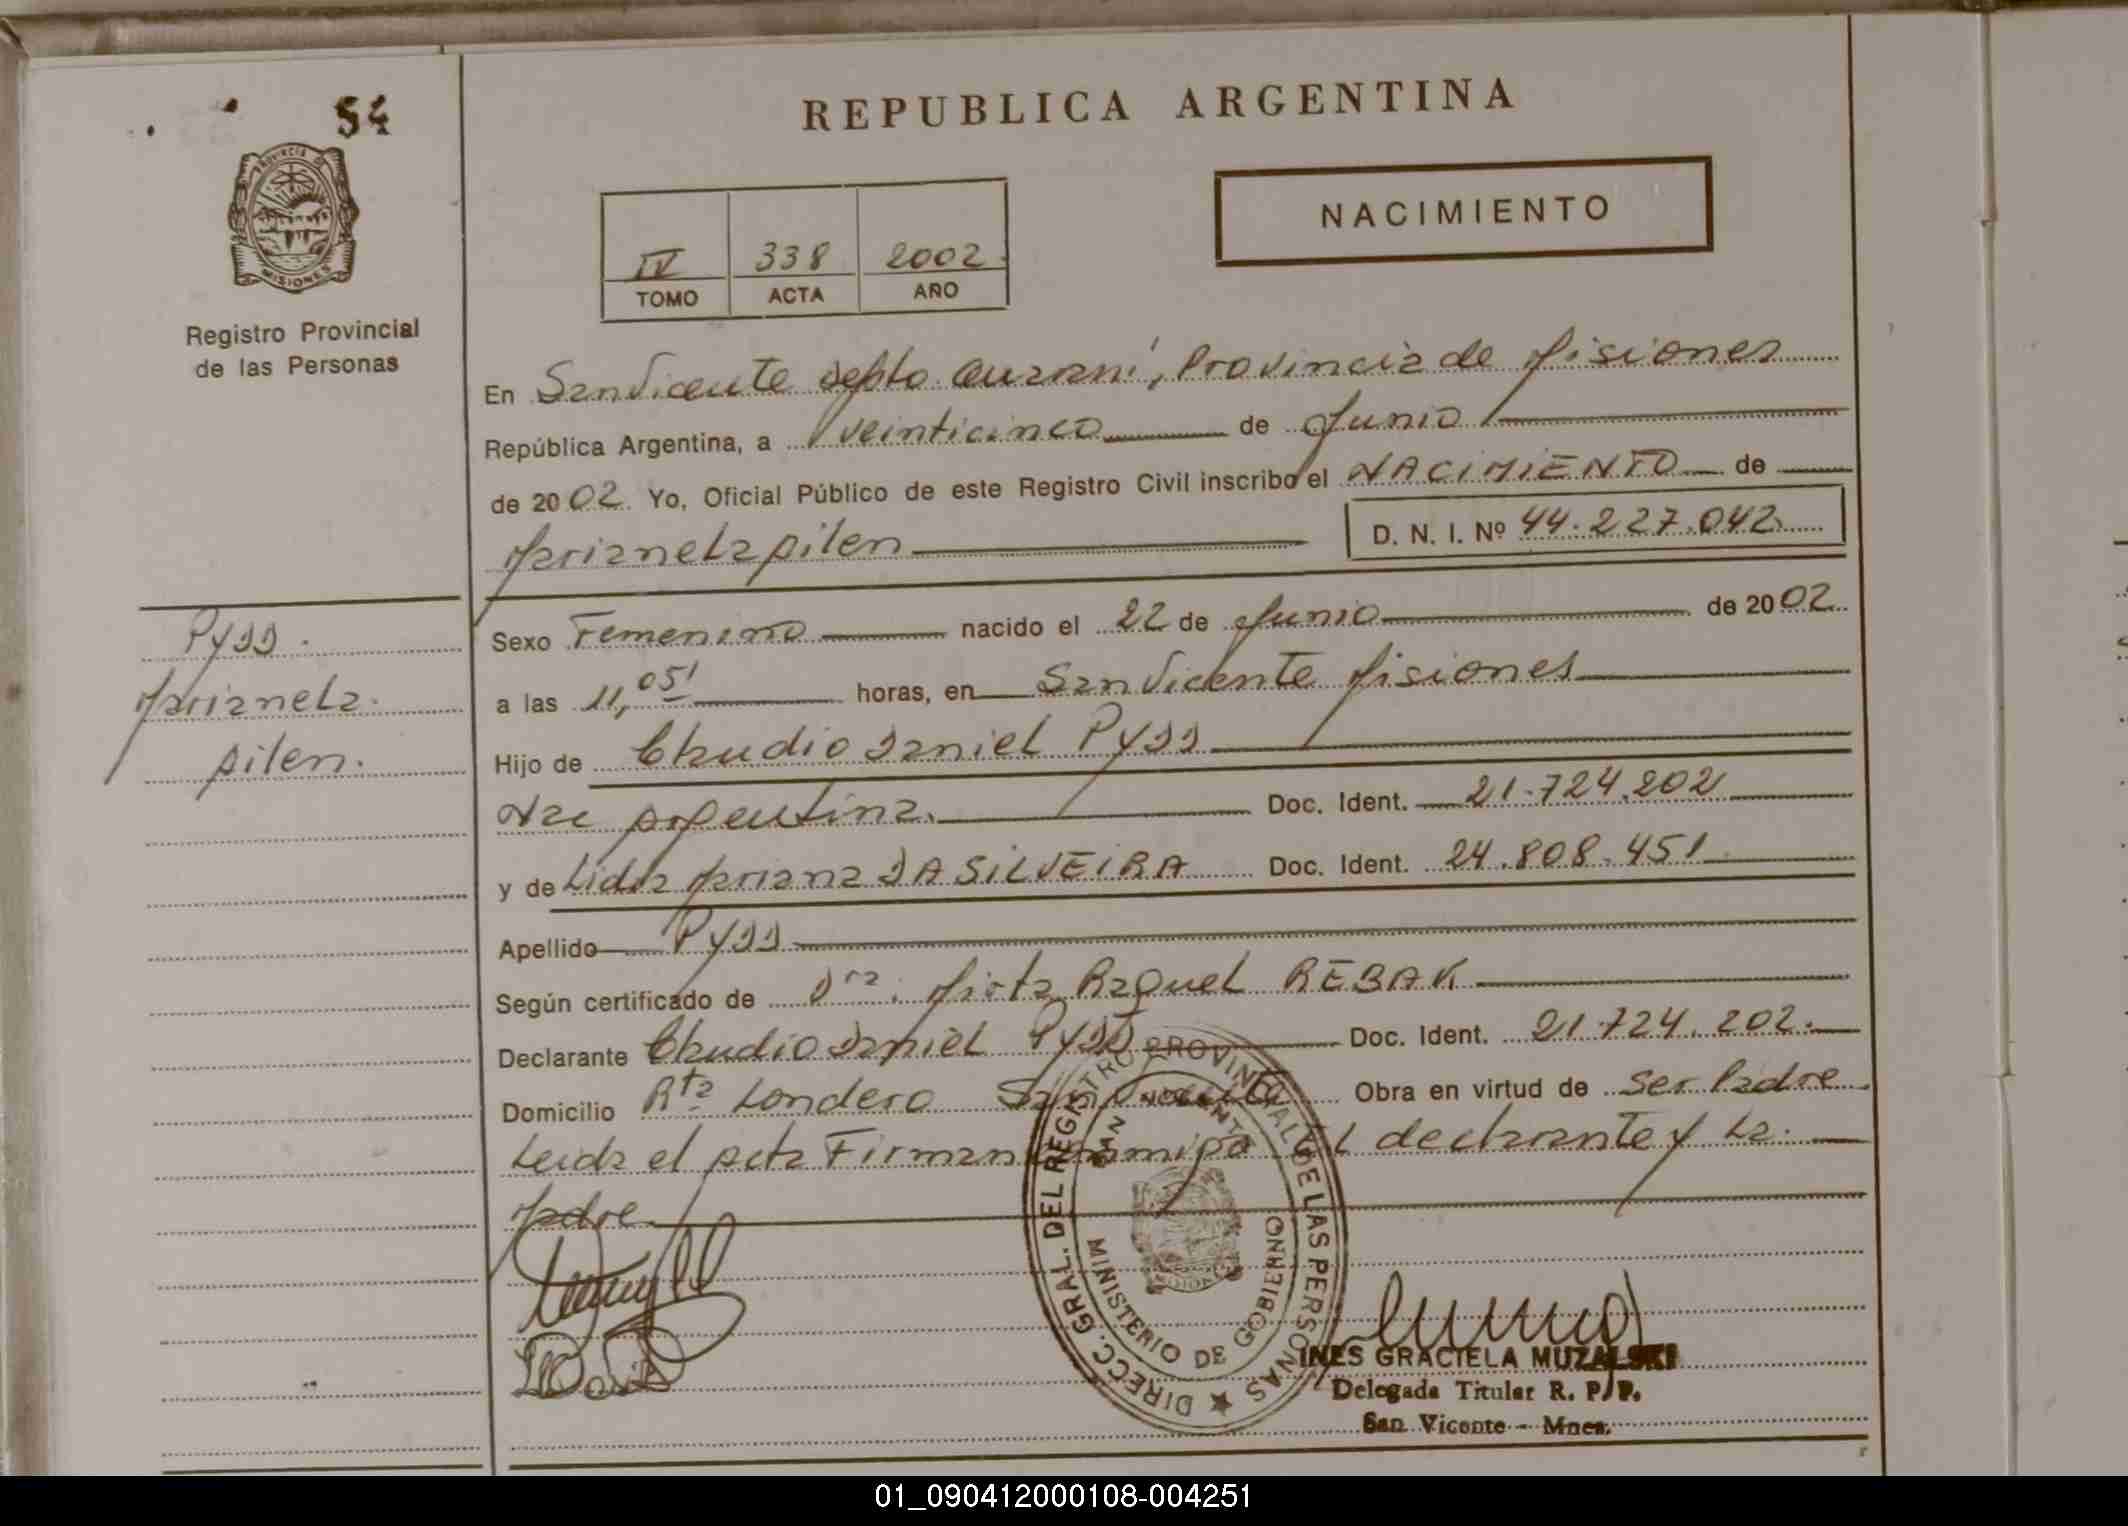 54
PROVINCIA DE
MISIONES
Registro Provincial
de las Personas
REPUBLICA ARGENTINA
NACIMIENTO
IV 338 2002
TOMO ACTA AÑO
En San Vicente Depto. Guaraní, Provincia de Misiones
República Argentina, a veinticinco de Junio
de 2002. Yo, Oficial Público de este Registro Civil inscribo el NACIMIENTO de
Marianela Ailen
D. N. I. Nº 44.227.042
Pydd.
Marianela.
Ailen.
Sexo Femenino nacido el 22 de Junio de 2002
a las 11,05' horas, en San Vicente Misiones
Hijo de Claudio Daniel Pydd
Nac Argentina. Doc. Ident. 21.724.202
y de Lidia Mariana DA SILVEIRA Doc. Ident. 24.808.451
Apellido Pydd
Según certificado de Dra. Mirta Raquel REBAK
Declarante Claudio Daniel Pydd Doc. Ident. 21.724.202.
Domicilio Rta Londero San Vicente Obra en virtud de Ser Padre
Leida el Acta Firman Conmigo El declarante y La.
Madre
DIRECC. GRAL. DEL REGISTRO PROVINCIAL DE LAS PERSONAS
SAN VICENTE
MINISTERIO DE GOBIERNO
INES GRACIELA MUZALSKI
Delegada Titular R. P. P.
San Vicente - Mnes.
01_090412000108-004251